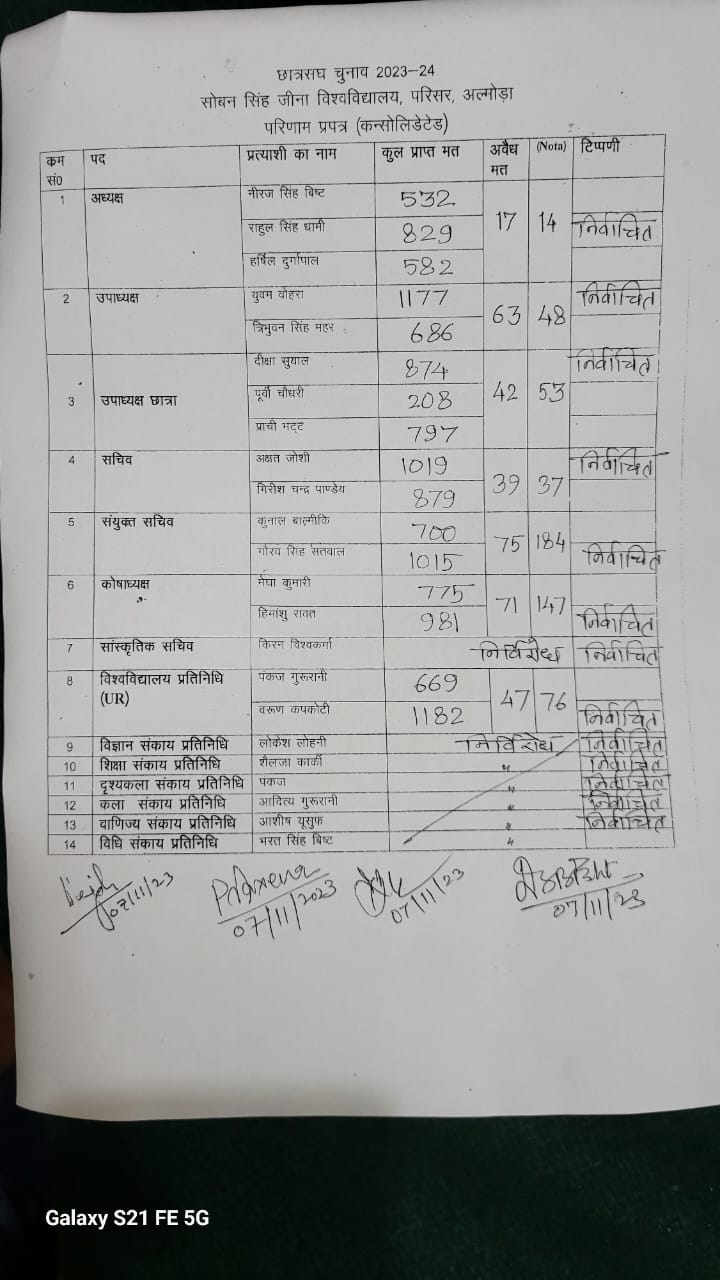 छात्रसघ चुनाव 2023–24
सोबन सिंह जीना विश्वविद्यालय, परिसर, अल्मोड़ा
परिणाम प्रपत्र (कन्सोलिडेटेड)
कम सं0 पद प्रत्याशी का नाम कुल प्राप्त मत अवैध मत (Nota) टिप्पणी
1 अध्यक्ष नीरज सिंह बिष्ट 532 17 14
राहुल सिंह धामी 829 निर्वाचित
हर्षिल दुर्गापाल 582
2 उपाध्यक्ष युवम वोहरा 1177 63 48 निर्वाचित
त्रिभुवन सिंह महर 686
3 उपाध्यक्ष छात्रा दीक्षा सुयाल 874 42 53 निर्वाचित
पूर्वी चौधरी 208
प्राची भट्ट 797
4 सचिव अक्षत जोशी 1019 39 37 निर्वाचित
गिरीश चन्द्र पाण्डेय 879
5 संयुक्त सचिव कुनाल बाल्मीकि 700 75 184
गौरव सिंह सतवाल 1015 निर्वाचित
6 कोषाध्यक्ष मेघा कुमारी 775 71 147
हिमांशु रावत 981 निर्वाचित
7 सांस्कृतिक सचिव किरन विश्वकर्मा निर्विरोध निर्वाचित
8 विश्वविद्यालय प्रतिनिधि (UR) पंकज गुरूरानी 669 47 76
वरूण कपकोटी 1182 निर्वाचित
9 विज्ञान संकाय प्रतिनिधि लोकेश लोहनी निर्विरोध निर्वाचित
10 शिक्षा संकाय प्रतिनिधि शैलजा कार्की " निर्वाचित
11 दृश्यकला संकाय प्रतिनिधि पंकज " निर्वाचित
12 कला संकाय प्रतिनिधि आदित्य गुरूरानी " निर्वाचित
13 वाणिज्य संकाय प्रतिनिधि आशीष यूसुफ " निर्वाचित
14 विधि संकाय प्रतिनिधि भरत सिंह बिष्ट "
07/11/23 07/11/2023 07/11/23 07/11/23
Galaxy S21 FE 5G